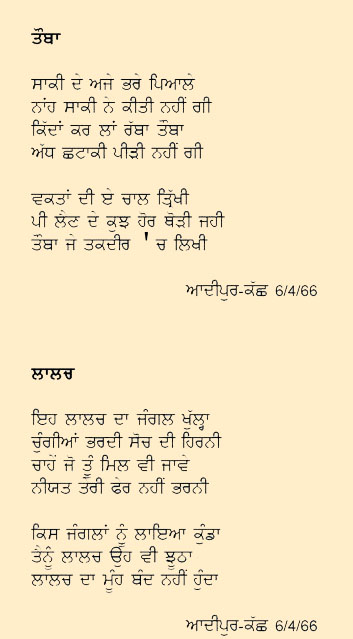 ਤੌਬਾ
ਸਾਕੀ ਦੇ ਅਜੇ ਭਰੇ ਪਿਆਲੇ
ਨਾਂਹ ਸਾਕੀ ਨੇ ਕੀਤੀ ਨਹੀਂ ਗੀ
ਕਿੱਦਾਂ ਕਰ ਲਾਂ ਰੱਬਾ ਤੌਬਾ
ਅੱਧ ਛਟਾਕੀ ਪੀੜੀ ਨਹੀਂ ਗੀ
ਵਕਤਾਂ ਦੀ ਏ ਚਾਲ ਤ੍ਰਿੱਖੀ
ਪੀ ਲੈਣ ਦੇ ਕੁਝ ਹੋਰ ਥੋੜੀ ਜਹੀ
ਤੌਬਾ ਜੇ ਤਕਦੀਰ 'ਚ ਲਿਖੀ
ਆਦੀਪੁਰ-ਕੱਛ 6/4/66
ਲਾਲਚ
ਇਹ ਲਾਲਚ ਦਾ ਜੰਗਲ ਖੁੱਲ੍ਹਾ
ਚੁੰਗੀਆਂ ਭਰਦੀ ਸੋਚ ਦੀ ਹਿਰਨੀ
ਚਾਹੇਂ ਜੋ ਤੂੰ ਮਿਲ ਵੀ ਜਾਵੇ
ਨੀਯਤ ਤੇਰੀ ਫੇਰ ਨਹੀਂ ਭਰਨੀ
ਕਿਸ ਜੰਗਲਾਂ ਨੂੰ ਲਾਇਆ ਕੁੰਡਾ
ਤੈਨੂੰ ਲਾਲਚ ਉਂਹ ਵੀ ਝੂਠਾ
ਲਾਲਚ ਦਾ ਮੂੰਹ ਬੰਦ ਨਹੀਂ ਹੁੰਦਾ
ਆਦੀਪੁਰ-ਕੱਛ 6/4/66